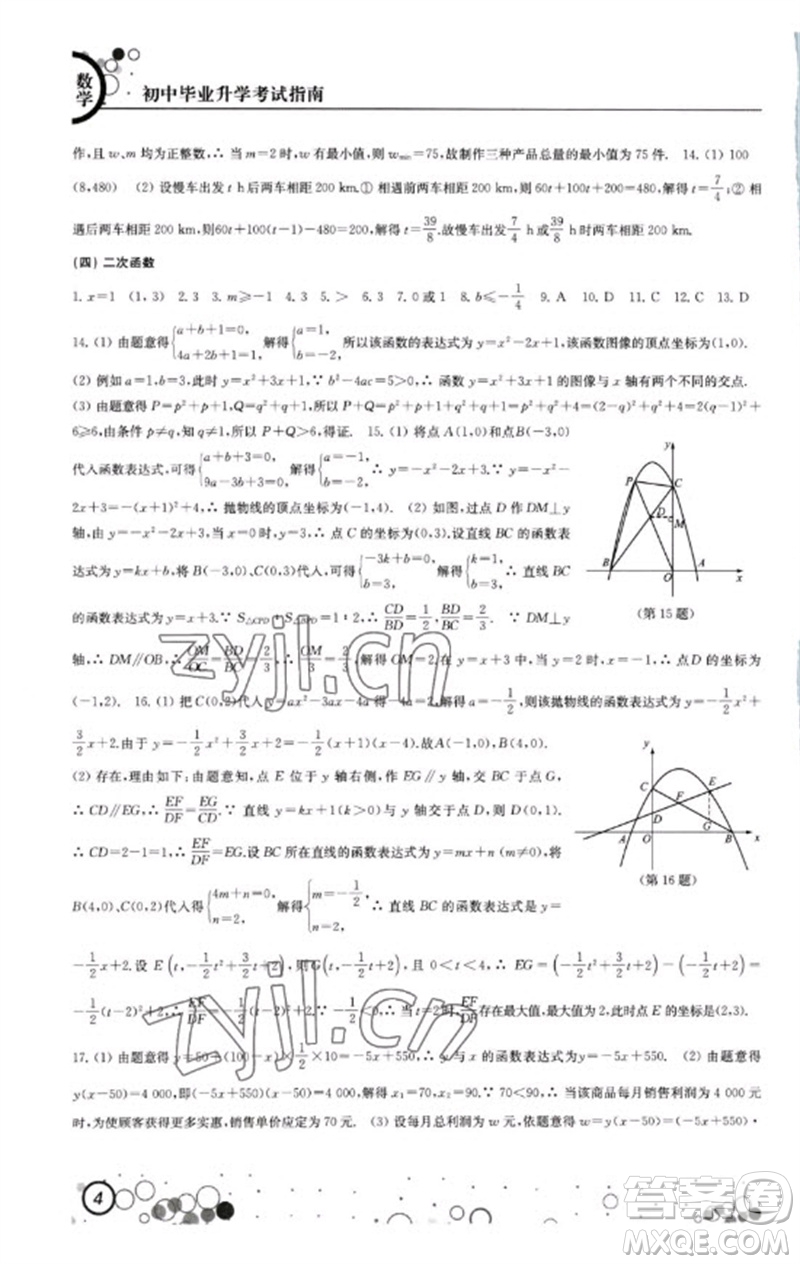 数学
初中毕业升学考试指南
作,且 w、m 均为正整数,∴ 当 m=2 时,w 有最小值,则 w_min=75,故制作三种产品总量的最小值为 75 件. 14.(1) 100
(8,480) (2) 设慢车出发 t h后两车相距 200 km.① 相遇前两车相距 200 km,则 60t+100+200=480,解得 t=7/4;② 相
遇后两车相距 200 km,则60t+100(t−1)−480=200,解得 t=39/8.故慢车出发 7/4 h或 39/8 h时两车相距 200 km.
(四) 二次函数
1. x=1 (1,3) 2. 3 3. m≥−1 4. 3 5. > 6. 3 7. 0或1 8. b≤−1/4 9. A 10. D 11. D 12. C 13. D
14.(1) 由题意得{a+b+1=0, 4a+2b+1=1, 解得{a=1, b=−2, 所以该函数的表达式为 y=x²−2x+1,故该函数图像的顶点坐标为(1,0).
(2) 例如 a=1,b=3,此时 y=x²+3x+1,∵ b²−4ac=5>0,∴ 函数 y=x²+3x+1 的图像与 x 轴有两个不同的交点.
(3) 由题意得 P=p²+p+1,Q=q²+q+1,所以 P+Q=p²+p+1+q²+q+1=p²+q²+4=(2−q)²+q²+4=2(q−1)²+6
≥6,由条件 p≠q,知 q≠1,所以 P+Q>6,得证. 15.(1) 将点A(1,0)和点B(−3,0)
代入函数表达式,可得{a+b+3=0, 9a−3b+3=0, 解得{a=−1, b=−2, ∴ 抛物线的表达式为 y=−x²−2x+3.∵ y=−x²−
2x+3=−(x+1)²+4,∴ 抛物线的顶点坐标为(−1,4). (2) 如图,过点 D 作 DM⊥y
轴,由 y=−x²−2x+3,∴ 点 C 的坐标为(0,3).设直线 BC 的函数表
达式为 y=kx+b,将 B(−3,0)、C(0,3)代入,可得{−3k+b=0, b=3, 解得{k=1, b=3, ∴ 直线 BC
的函数表达式为 y=x+3.∵ S△CPD∶S△BPD=1∶2,∴ CD/BD=1/2,BD/BC=2/3. ∵ DM⊥y
轴,∴ DM∥OB,∴ OM/OC=BD/BC=2/3,∴ OM/3=2/3,解得 OM=2.在 y=x+3 中,∴ 点D的坐标为
(−1,2). 16.(1) 把 C(0,2)代入 y=ax²−3ax−4a 得−4a=2.解得 a=−1/2,则该抛物线的函数表达式为 y=−1/2x²+
3/2x+2.由于 y=−1/2x²+3/2x+2=−1/2(x+1)(x−4).故A(−1,0),B(4,0).
(2) 存在,理由如下:由题意知,点 E 位于 y 轴右侧,作EG∥y 轴,交 BC 于点 G,
∴ CD∥EG,∴ EF/DF=EG/CD.∵ 直线 y=kx+1(k>0)与 y 轴交于点 D,则 D(0,1).
∴ CD=2−1=1,∴ EF/DF=EG.设 BC 所在直线的函数表达式为 y=mx+n (m≠0),将
B(4,0)、C(0,2)代入得{4m+n=0, n=2, 解得{m=−1/2, n=2, ∴ 直线 BC 的函数表达式是 y=
−1/2x+2.设 E(t,−1/2t²+3/2t+2),则G(t,−1/2t+2),且 0<t<4,∴ EG=(−1/2t²+3/2t+2)−(−1/2t+2)=
−1/2(t−2)²+2,∴ EF/DF=−1/2(t−2)²+2.∵ −1/2<0,∴ 当 t=2时,EF/DF存在最大值,最大值为 2,此时点 E的坐标为(2,3).
17.(1) 由题意得 y=50+(100−x)×1/2×10=−5x+550,∴ y 与 x 的函数表达式为 y=−5x+550. (2) 由题意得
y(x−50)=4 000,即(−5x+550)(x−50)=4 000,解得 x₁=70,x₂=90.∵ 70<90,∴ 当该商品每月销售利润为 4 000 元
时,为使顾客获得更多实惠,销售单价应定为 70 元. (3) 设每月总利润为 w,依题意得 w=y(x−50)=(−5x+550)·
y
P
C
D
M
B
O
A
x
(第 15 题)
y
C
E
F
D
A
O
G
B
x
(第 16 题)
zyjl.cn
zyjl.cn
4
答案圈
MXQE.COM